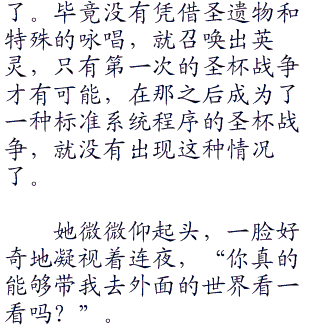 了。毕竟没有凭借圣遗物和
特殊的咏唱，就召唤出英
灵，只有第一次的圣杯战争
才有可能，在那之后成为了
一种标准系统程序的圣杯战
争，就没有出现这种情况
了。
她微微仰起头，一脸好
奇地凝视着连夜，“你真的
能够带我去外面的世界看一
看吗？”。